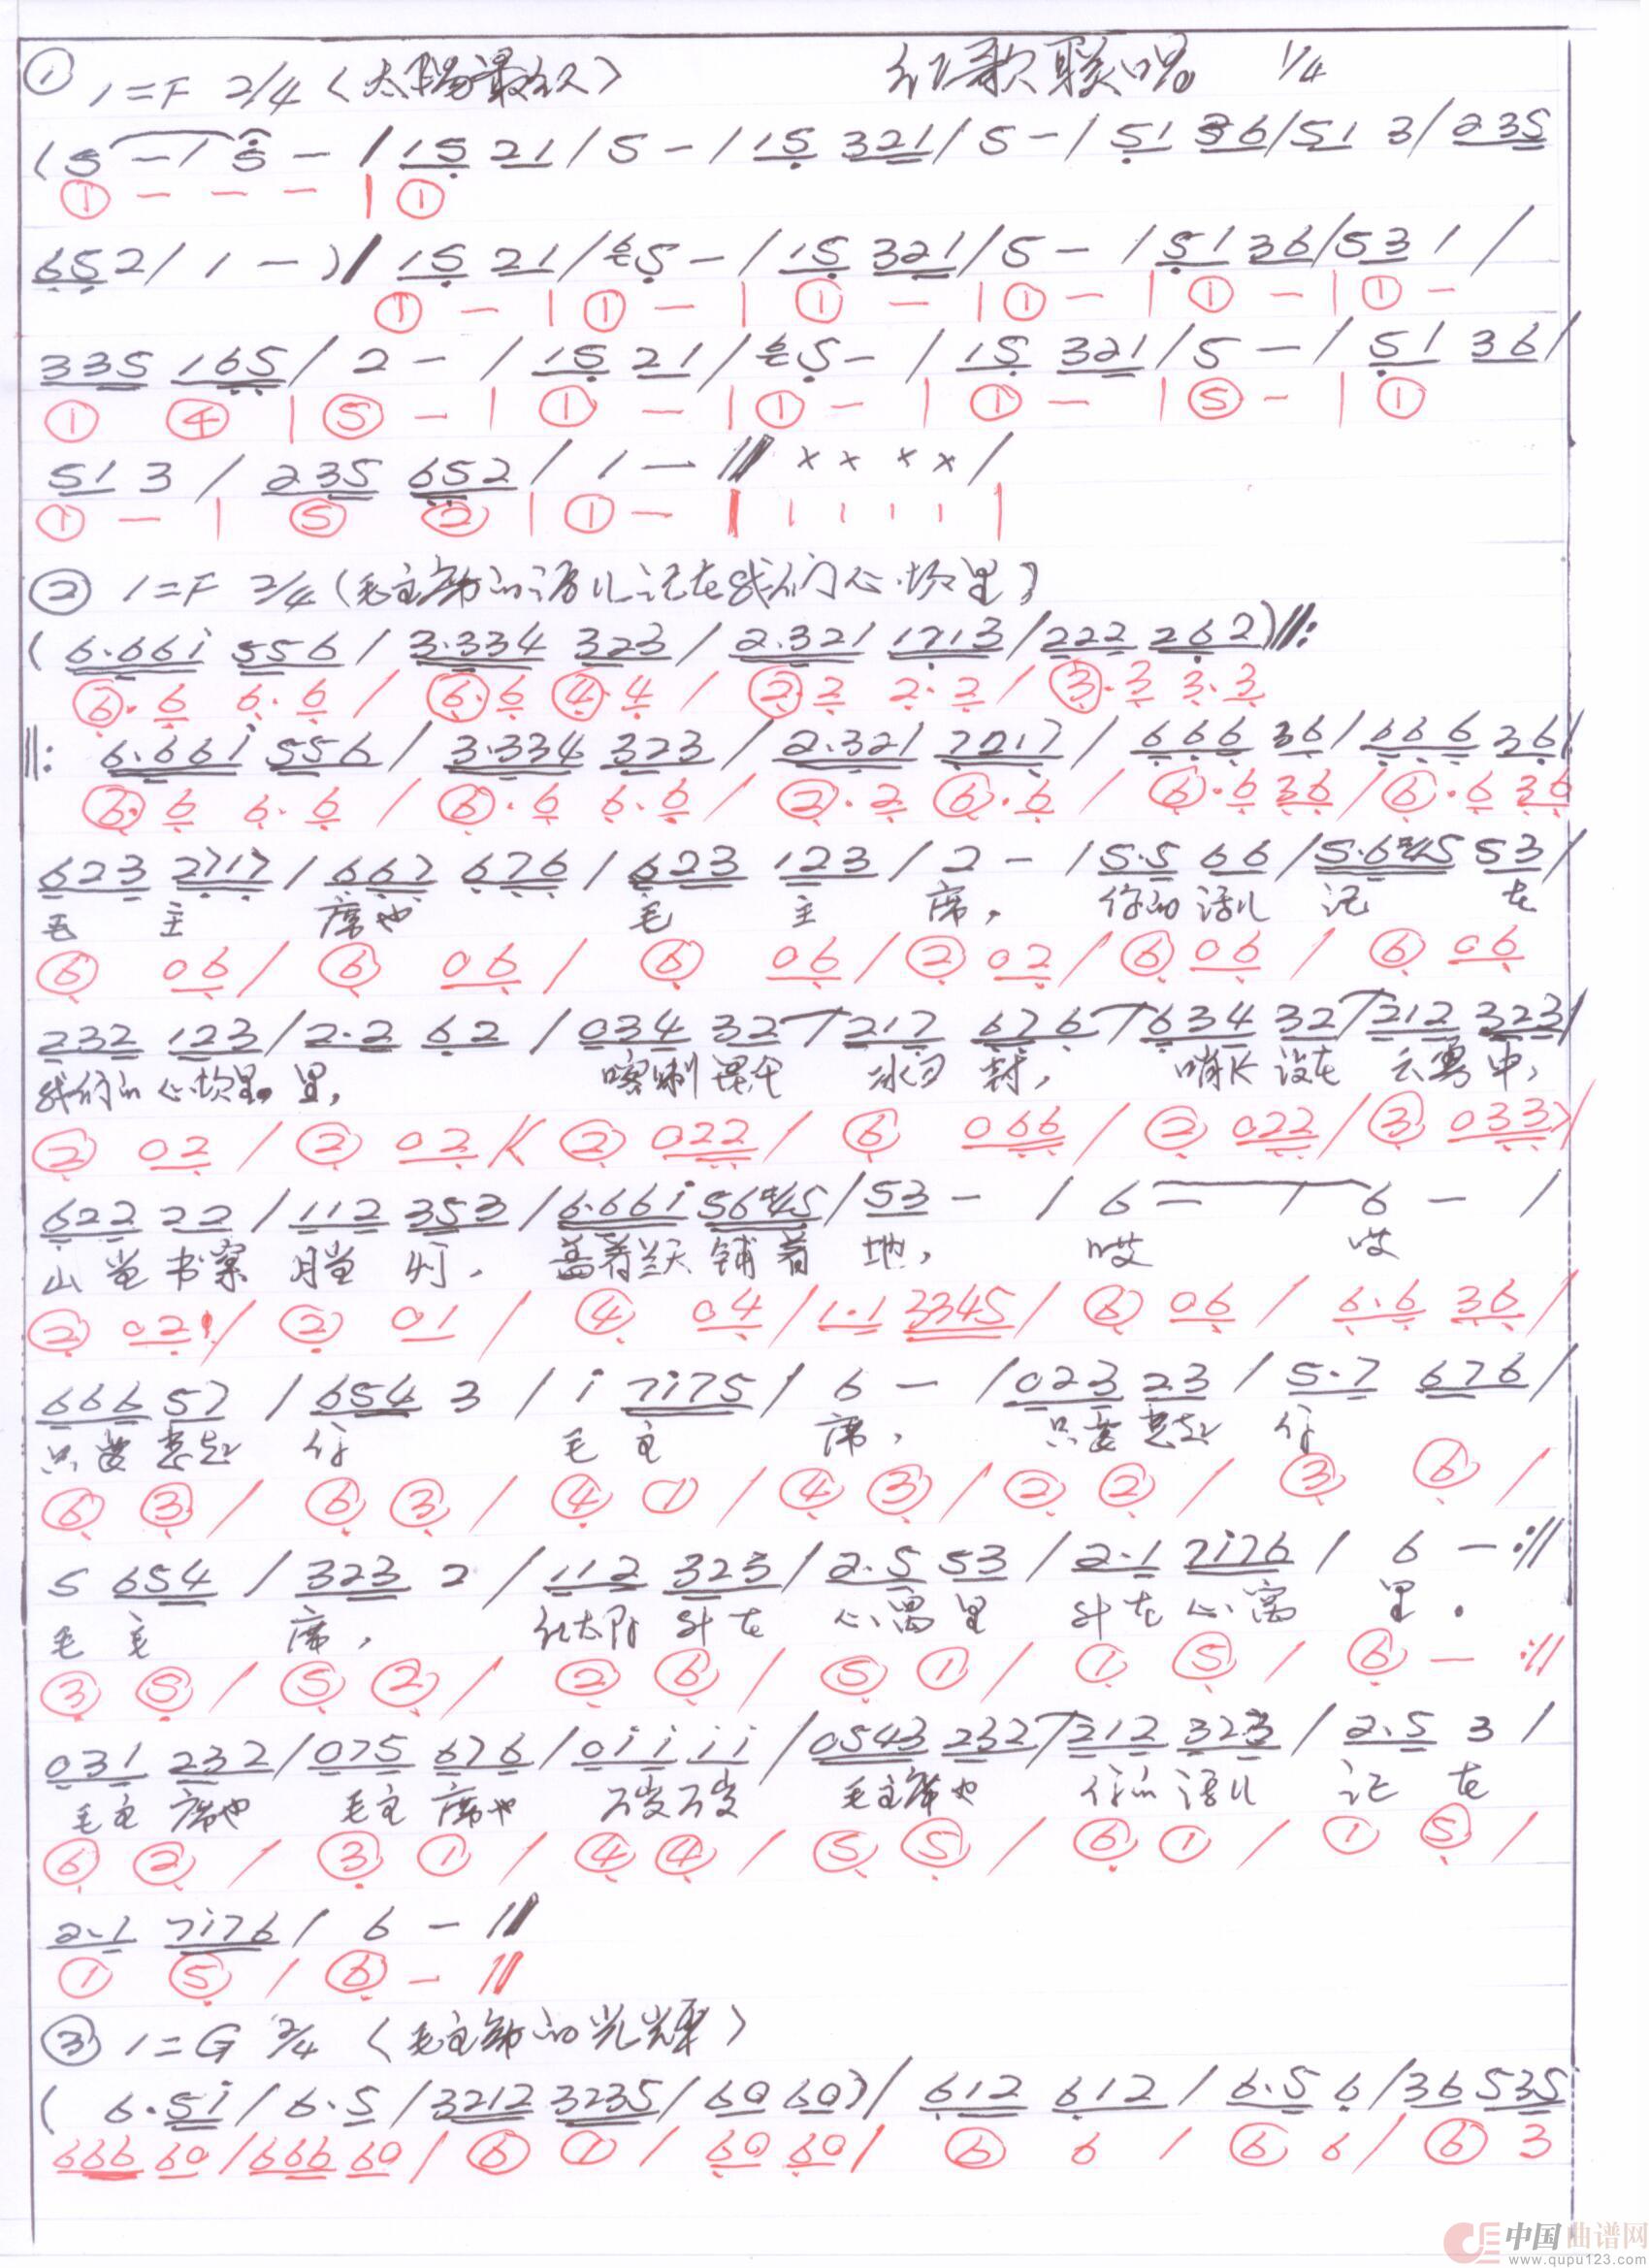 ① 1=F 2/4 〈太阳最红〉 红歌联唱 1/4
(5 — / 5 — / 15 21 / 5 — / 15 321 / 5 — / 51 36 / 51 3 / 235
① — — — | ①
652 / 1 — ) / 15 21 / 5 — / 15 321 / 5 — / 51 36 / 53 1 /
① — | ① — | ① — | ① — | ① — | ① —
335 165 / 2 — / 15 21 / 5 — / 15 321 / 5 — / 51 36 /
① ④ | ⑤ — | ① — | ① — | ① — | ⑤ — | ①
51 3 / 235 652 / 1 — // × × × × /
① — | ⑤ ② | ① — | | | | | |
② 1=F 2/4 (毛主席的话儿记在我们心坎里)
( 6.661 556 / 3.334 323 / 2.321 1713 / 222 262 ) //:
⑥.6 6.6 / ⑥.6 ④.4 / ②.2 2.2 / ③.3 3.3
//: 6.661 556 / 3.334 323 / 2.321 7217 / 666 36 / 666 36 /
⑥.6 6.6 / ⑥.6 6.6 / ②.2 ⑥.6 / ⑥.6 36 / ⑥.6 36
623 2717 / 667 676 / 623 123 / 2 — / 5.5 66 / 5.6#45 53 /
毛 主 席也 毛 主 席, 你的话儿 记 在
⑥ 06 / ⑥ 06 / ⑥ 06 / ② 02 / ⑥ 06 / ⑥ 06
232 123 / 2.2 62 / 034 32 / 217 676 / 634 32 / 212 323 /
我们的心坎里 里, 喀喇昆仑 冰雪 封, 哨卡设在 云雾中,
② 02 / ② 02 / ② 022 / ⑥ 066 / ② 022 / ③ 033 /
622 22 / 112 353 / 6.661 56#45 / 53 — / 6 — / 6 — /
山当书案 月当 灯, 盖着蓝天 铺着 地, 哎 哎
② 02 / ② 01 / ④ 04 / 1.1 3345 / ⑥ 06 / 6.6 36 /
666 57 / 654 3 / 1 7175 / 6 — / 023 23 / 5.7 676 /
只要想起 你 毛 主 席, 只要想起 你
⑥ ③ / ⑥ ③ / ④ ① / ④ ③ / ② ② / ③ ⑥ /
5 654 / 323 2 / 112 323 / 2.5 53 / 2.1 7176 / 6 — ://
毛 主 席, 红太阳 升在 心窝里 升在心窝 里.
③ ⑤ / ⑤ ② / ② ⑥ / ⑤ ① / ① ⑤ / ⑥ — ://
031 232 / 075 676 / 011 11 / 0543 232 / 212 323 / 2.5 3 /
毛主席也 毛主席也 万岁万岁 毛主席也 你的话儿 记 在
⑥ ② / ③ ① / ④ ④ / ⑤ ⑤ / ⑥ ① / ① ⑤ /
2.1 7176 / 6 — //
① ⑤ / ⑥ — //
③ 1=G 2/4 〈毛主席的光辉〉
( 6.51 / 6.5 / 3212 3235 / 60 60 ) / 612 612 / 6.5 6 / 36 535
666 60 / 666 60 / ⑥ ① / 60 60 / ⑥ 6 / ⑥ 6 / ⑥ 3
中国曲谱网
www.qupu123.com